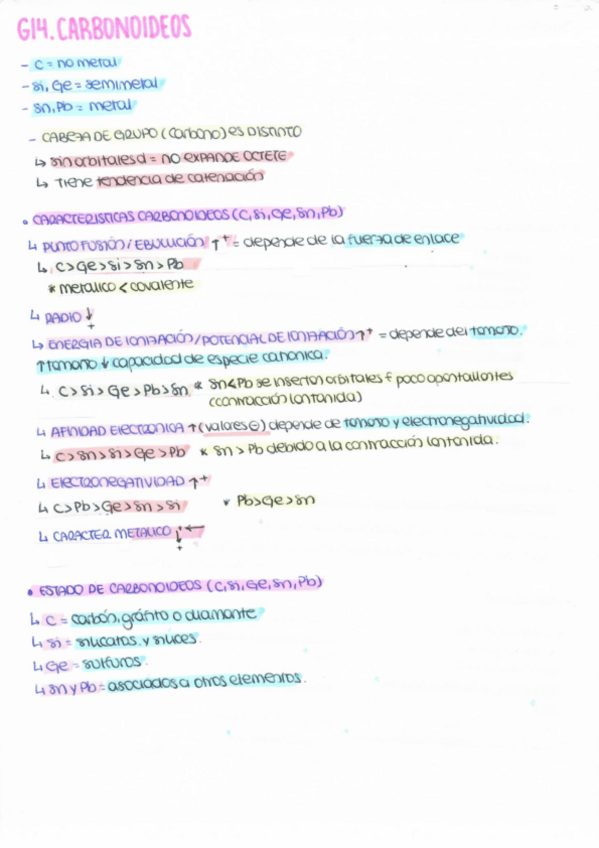 G14. CARBONOIDEOS
- C = no metal
- Si, Ge = semimetal
- Sn, Pb = metal
- CABEZA DE GRUPO (Carbono) es DISTINTO
↳ sin orbitales d = NO EXPANDE OCTETE
↳ Tiene tendencia de catenación
• CARACTERISTICAS CARBONOIDEOS (C, Si, Ge, Sn, Pb)
↳ PUNTO FUSIÓN / EBULLICIÓN ↑⁺ = depende de la fuerza de enlace
↳ C > Ge > Si > Sn > Pb
* metálico < covalente
↳ RADIO ↓+
↳ ENERGIA DE IONIZACIÓN / POTENCIAL DE IONIZACIÓN ↑⁺ = depende del tamaño.
↑ tamaño ↓ capacidad de especie cationica.
↳ C > Si > Ge > Pb > Sn * Sn < Pb se insertan orbitales f poco apantallantes
(contracción lantanida)
↳ AFINIDAD Electronica ↑ (valores ⊖) depende de tamaño y electronegatividad.
↳ C > Sn > Si > Ge > Pb * Sn > Pb debido a la contracción lantanida.
↳ ELECTRONEGATIVIDAD ↑⁺
↳ C > Pb > Ge > Sn > Si * Pb > Ge > Sn
↳ CARACTER METALICO ↓+ ←
• ESTADO DE CARBONOIDEOS (C, Si, Ge, Sn, Pb)
↳ C = carbón, grafito o diamante
↳ Si = silicatos y sílices.
↳ Ge = sulfuros.
↳ Sn y Pb = asociados a otros elementos.